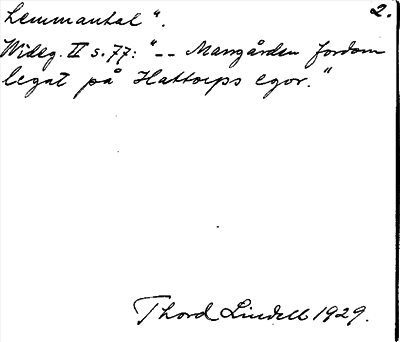 hemmantal".
2.
Wideg. II s. 77: "-- Mangården fordom
legat på Hattorps egor."
Thord Lindell 1929.